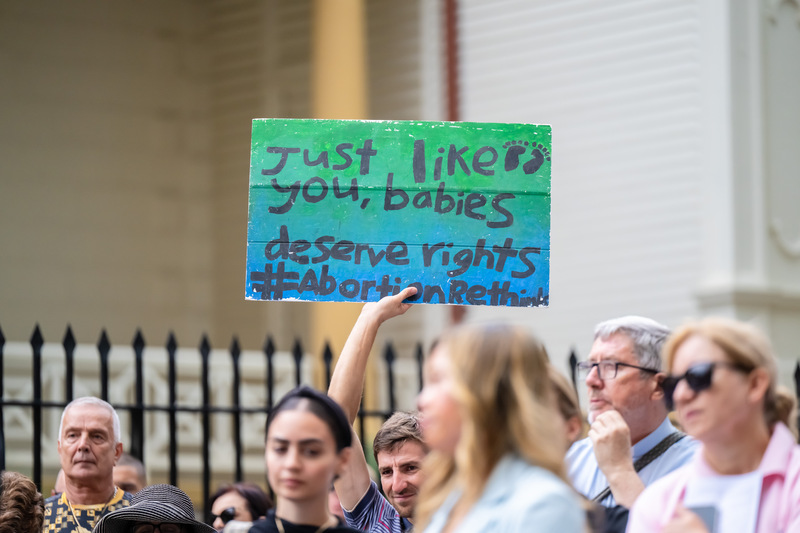 Just like
you, babies
deserve rights
#AbortionRethink